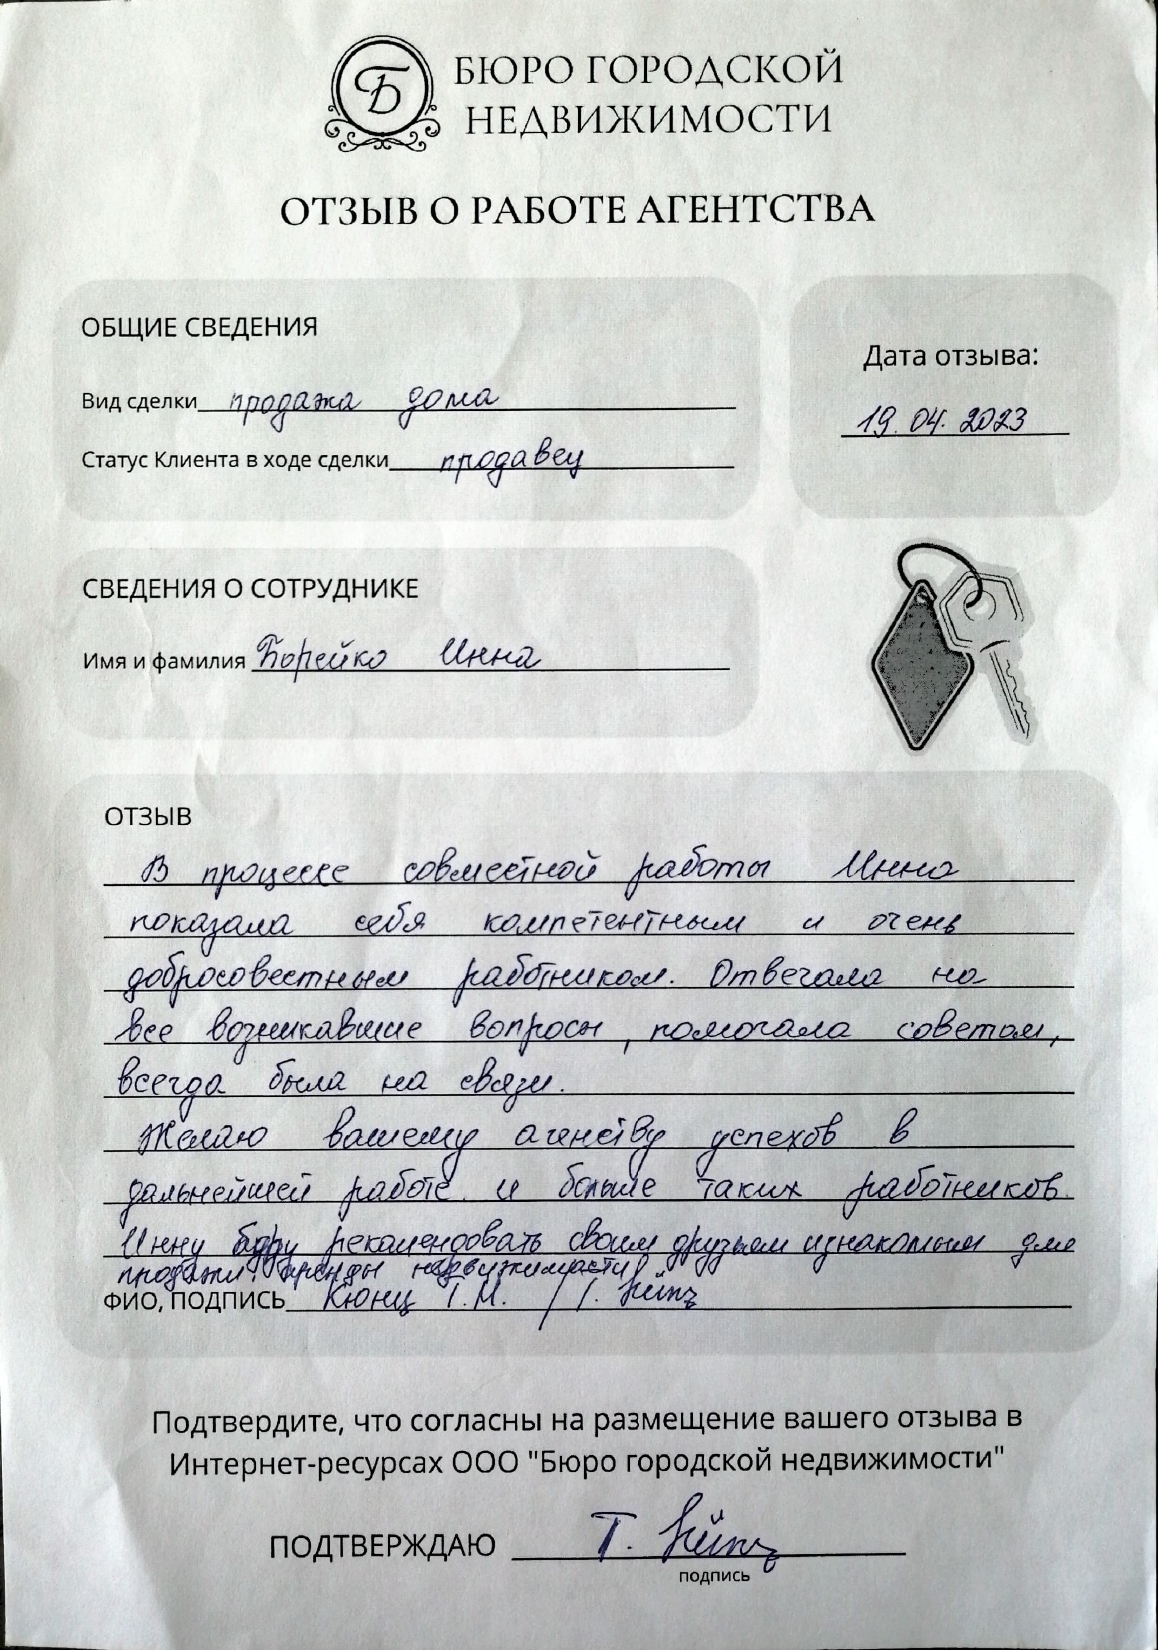 Б
БЮРО ГОРОДСКОЙ
НЕДВИЖИМОСТИ
ОТЗЫВ О РАБОТЕ АГЕНТСТВА
ОБЩИЕ СВЕДЕНИЯ
Вид сделки продажа дома
Статус Клиента в ходе сделки продавец
Дата отзыва:
19.04.2023
СВЕДЕНИЯ О СОТРУДНИКЕ
Имя и фамилия Борейко Инна
ОТЗЫВ
В процессе совместной работы Инна
показала себя компетентным и очень
добросовестным работником. Отвечала на
все возникавшие вопросы, помогала советом,
всегда была на связи.
Желаю вашему агенству успехов в
дальнейшей работе и больше таких работников.
Инну буду рекомендовать своим друзьям и знакомым для
продажи, аренды недвижимости
ФИО, ПОДПИСЬ Кюнц Т.М. / T.
Подтвердите, что согласны на размещение вашего отзыва в
Интернет-ресурсах ООО "Бюро городской недвижимости"
ПОДТВЕРЖДАЮ T.
подпись